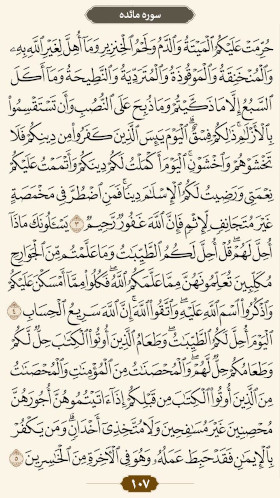 سوره مائده
حُرِّمَتْ عَلَيْكُمُ الْمَيْتَةُ وَالدَّمُ وَلَحْمُ الْخِنْزِيرِ وَمَا أُهِلَّ لِغَيْرِ اللَّهِ بِهِ
وَالْمُنْخَنِقَةُ وَالْمَوْقُوذَةُ وَالْمُتَرَدِّيَةُ وَالنَّطِيحَةُ وَمَا أَكَلَ
السَّبُعُ إِلَّا مَا ذَكَّيْتُمْ وَمَا ذُبِحَ عَلَى النُّصُبِ وَأَنْ تَسْتَقْسِمُوا
بِالْأَزْلَامِ ذَٰلِكُمْ فِسْقٌ ۗ الْيَوْمَ يَئِسَ الَّذِينَ كَفَرُوا مِنْ دِينِكُمْ فَلَا
تَخْشَوْهُمْ وَاخْشَوْنِ ۚ الْيَوْمَ أَكْمَلْتُ لَكُمْ دِينَكُمْ وَأَتْمَمْتُ عَلَيْكُمْ
نِعْمَتِي وَرَضِيتُ لَكُمُ الْإِسْلَامَ دِينًا ۚ فَمَنِ اضْطُرَّ فِي مَخْمَصَةٍ
غَيْرَ مُتَجَانِفٍ لِإِثْمٍ فَإِنَّ اللَّهَ غَفُورٌ رَحِيمٌ ۝٣ يَسْأَلُونَكَ مَاذَا
أُحِلَّ لَهُمْ ۖ قُلْ أُحِلَّ لَكُمُ الطَّيِّبَاتُ ۙ وَمَا عَلَّمْتُمْ مِنَ الْجَوَارِحِ
مُكَلِّبِينَ تُعَلِّمُونَهُنَّ مِمَّا عَلَّمَكُمُ اللَّهُ ۖ فَكُلُوا مِمَّا أَمْسَكْنَ عَلَيْكُمْ
وَاذْكُرُوا اسْمَ اللَّهِ عَلَيْهِ ۖ وَاتَّقُوا اللَّهَ ۚ إِنَّ اللَّهَ سَرِيعُ الْحِسَابِ ۝٤
الْيَوْمَ أُحِلَّ لَكُمُ الطَّيِّبَاتُ ۖ وَطَعَامُ الَّذِينَ أُوتُوا الْكِتَابَ حِلٌّ لَكُمْ
وَطَعَامُكُمْ حِلٌّ لَهُمْ ۖ وَالْمُحْصَنَاتُ مِنَ الْمُؤْمِنَاتِ وَالْمُحْصَنَاتُ
مِنَ الَّذِينَ أُوتُوا الْكِتَابَ مِنْ قَبْلِكُمْ إِذَا آتَيْتُمُوهُنَّ أُجُورَهُنَّ
مُحْصِنِينَ غَيْرَ مُسَافِحِينَ وَلَا مُتَّخِذِي أَخْدَانٍ ۗ وَمَنْ يَكْفُرْ
بِالْإِيمَانِ فَقَدْ حَبِطَ عَمَلُهُ وَهُوَ فِي الْآخِرَةِ مِنَ الْخَاسِرِينَ ۝٥
١٠٧